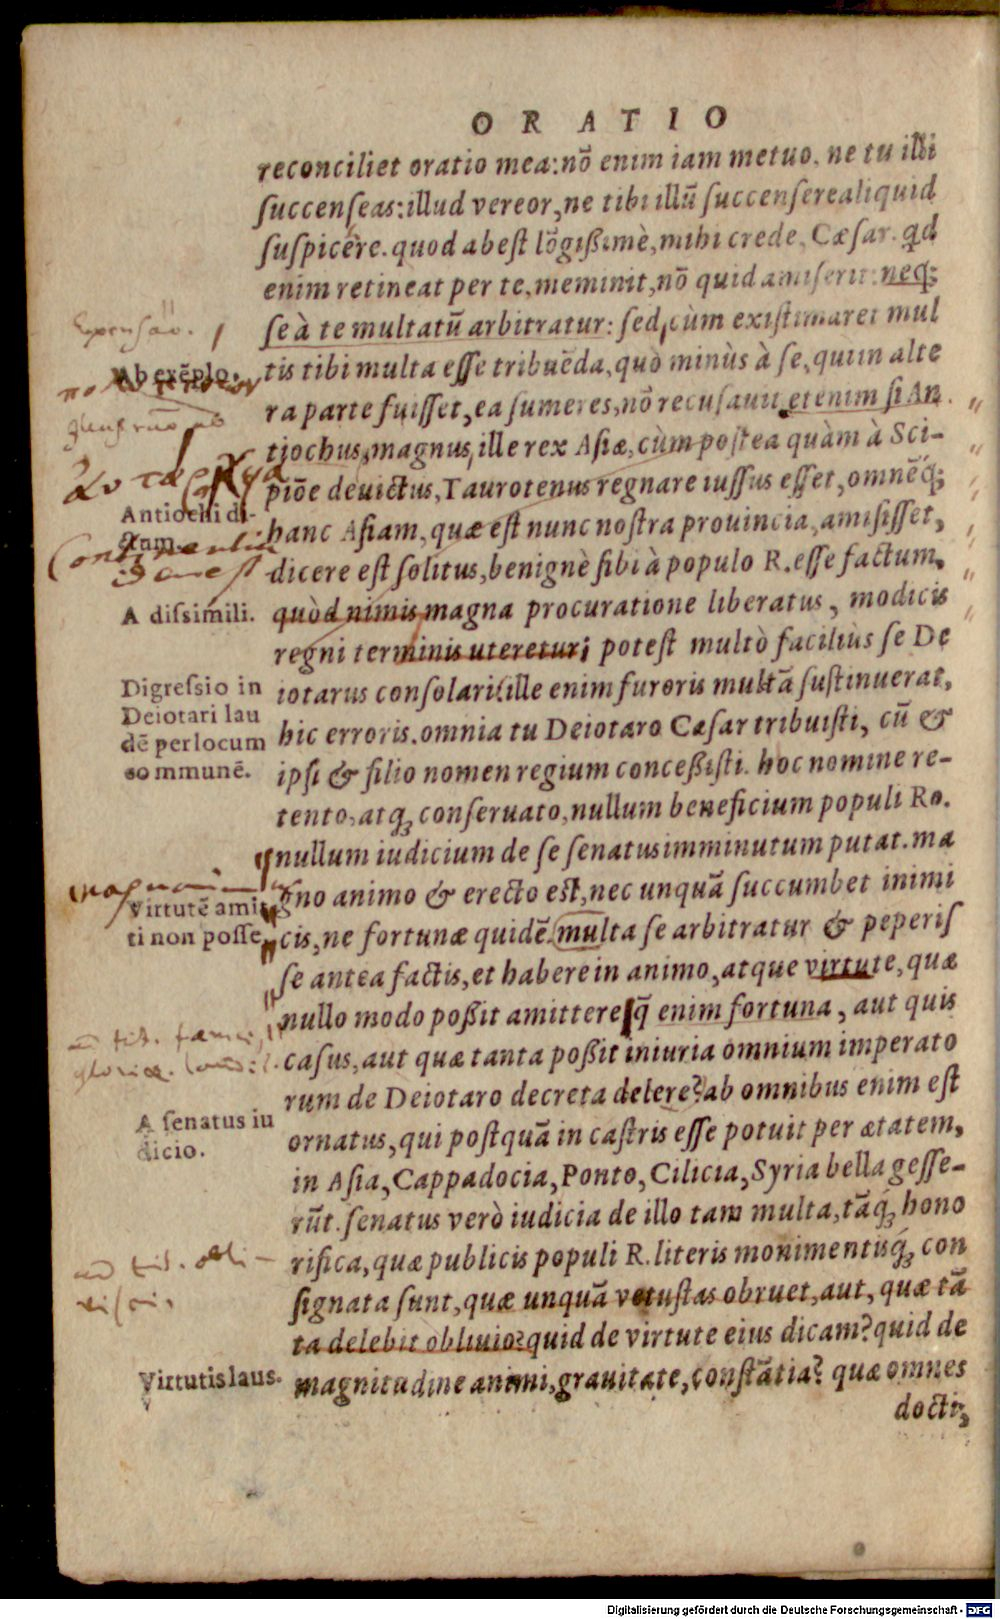 ORATIO
reconciliet oratio mea: nō enim iam metuo, ne tu illi
ſuccenſeas: illud vereor, ne tibi illū ſuccenſere aliquid
ſuſpicere. quod abeſt lōgißimè, mihi crede, Cæſar. qd
enim retineat per te, meminit, nō quid amiſerit: neq;
ſe à te multatū arbitratur: ſed, cùm exiſtimaret mul
tis tibi multa eſſe tribuēda, quò minùs à ſe, qui in alte
Ab exēplo.
ra parte fuiſſet, ea ſumeres, nō recuſauit. etenim ſi An
tiochus, magnus, ille rex Aſiæ, cùm poſtea quàm à Sci-
piōe deuictus, Tauro tenus regnare iuſſus eſſet, omnēq;
Antiochi di-
ctum.
hanc Aſiam, quæ eſt nunc noſtra prouincia, amiſiſſet,
dicere eſt ſolitus, benignè ſibi à populo R. eſſe factum,
A diſsimili.
quòd nimis magna procuratione liberatus, modicis
regni terminis uteretur; poteſt multò faciliùs ſe De
Digreſsio in
Deiotari lau
dē per locum
communē.
iotarus conſolari. ille enim furoris multā ſuſtinuerat,
hic erroris. omnia tu Deiotaro Cæſar tribuiſti, cū &
ipſi & filio nomen regium conceßiſti. hoc nomine re-
tento, atq; conſeruato, nullum beneficium populi Ro.
nullum iudicium de ſe ſenatus imminutum putat. ma
gno animo & erecto eſt, nec unquā ſuccumbet inimi
Virtutē amit
ti non poſſe.
cis, ne fortunæ quidē. multa ſe arbitratur & peperiſ
ſe antea factis, et habere in animo, atque virtute, quæ
nullo modo poßit amittere. q̄ enim fortuna, aut quis
caſus, aut quæ tanta poßit iniuria omnium imperato
rum de Deiotaro decreta delere? ab omnibus enim eſt
A ſenatus iu
dicio.
ornatus, qui poſtquā in caſtris eſſe potuit per ætatem,
in Aſia, Cappadocia, Ponto, Cilicia, Syria bella geſſe-
rūt. ſenatus verò iudicia de illo tam multa, tāq; hono
rifica, quæ publicis populi R. literis monimentisq; con
ſignata ſunt, quæ unquā vetuſtas obruet, aut, quæ tā
ta delebit obliuio? quid de virtute eius dicam? quid de
Virtutis laus.
magnitudine animi, grauitate, conſtātia? quæ omnes
docti,
Digitalisierung gefördert durch die Deutsche Forschungsgemeinschaft - DFG